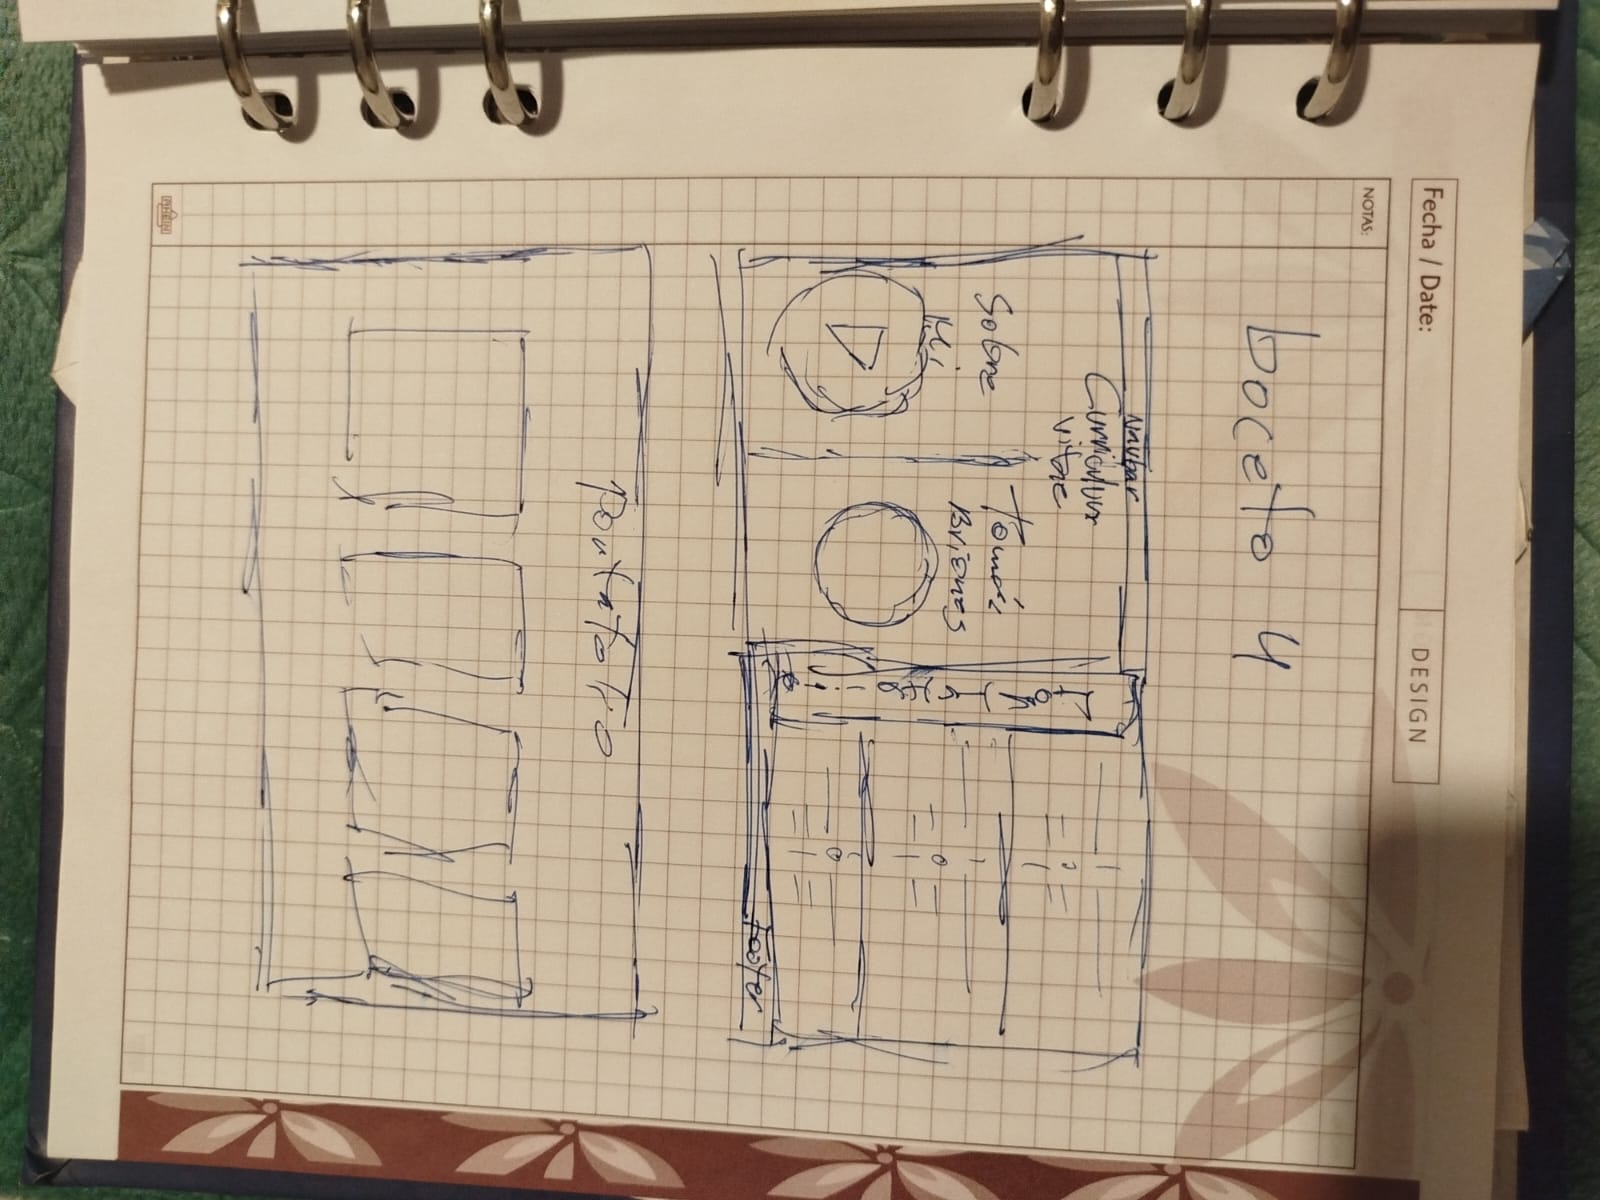 Fecha / Date:
DESIGN
NOTAS:
Boceto 4
Navbar
Curriculum
vitae
Sobre
Mi
Tomás
Briones
footer
Portafolio